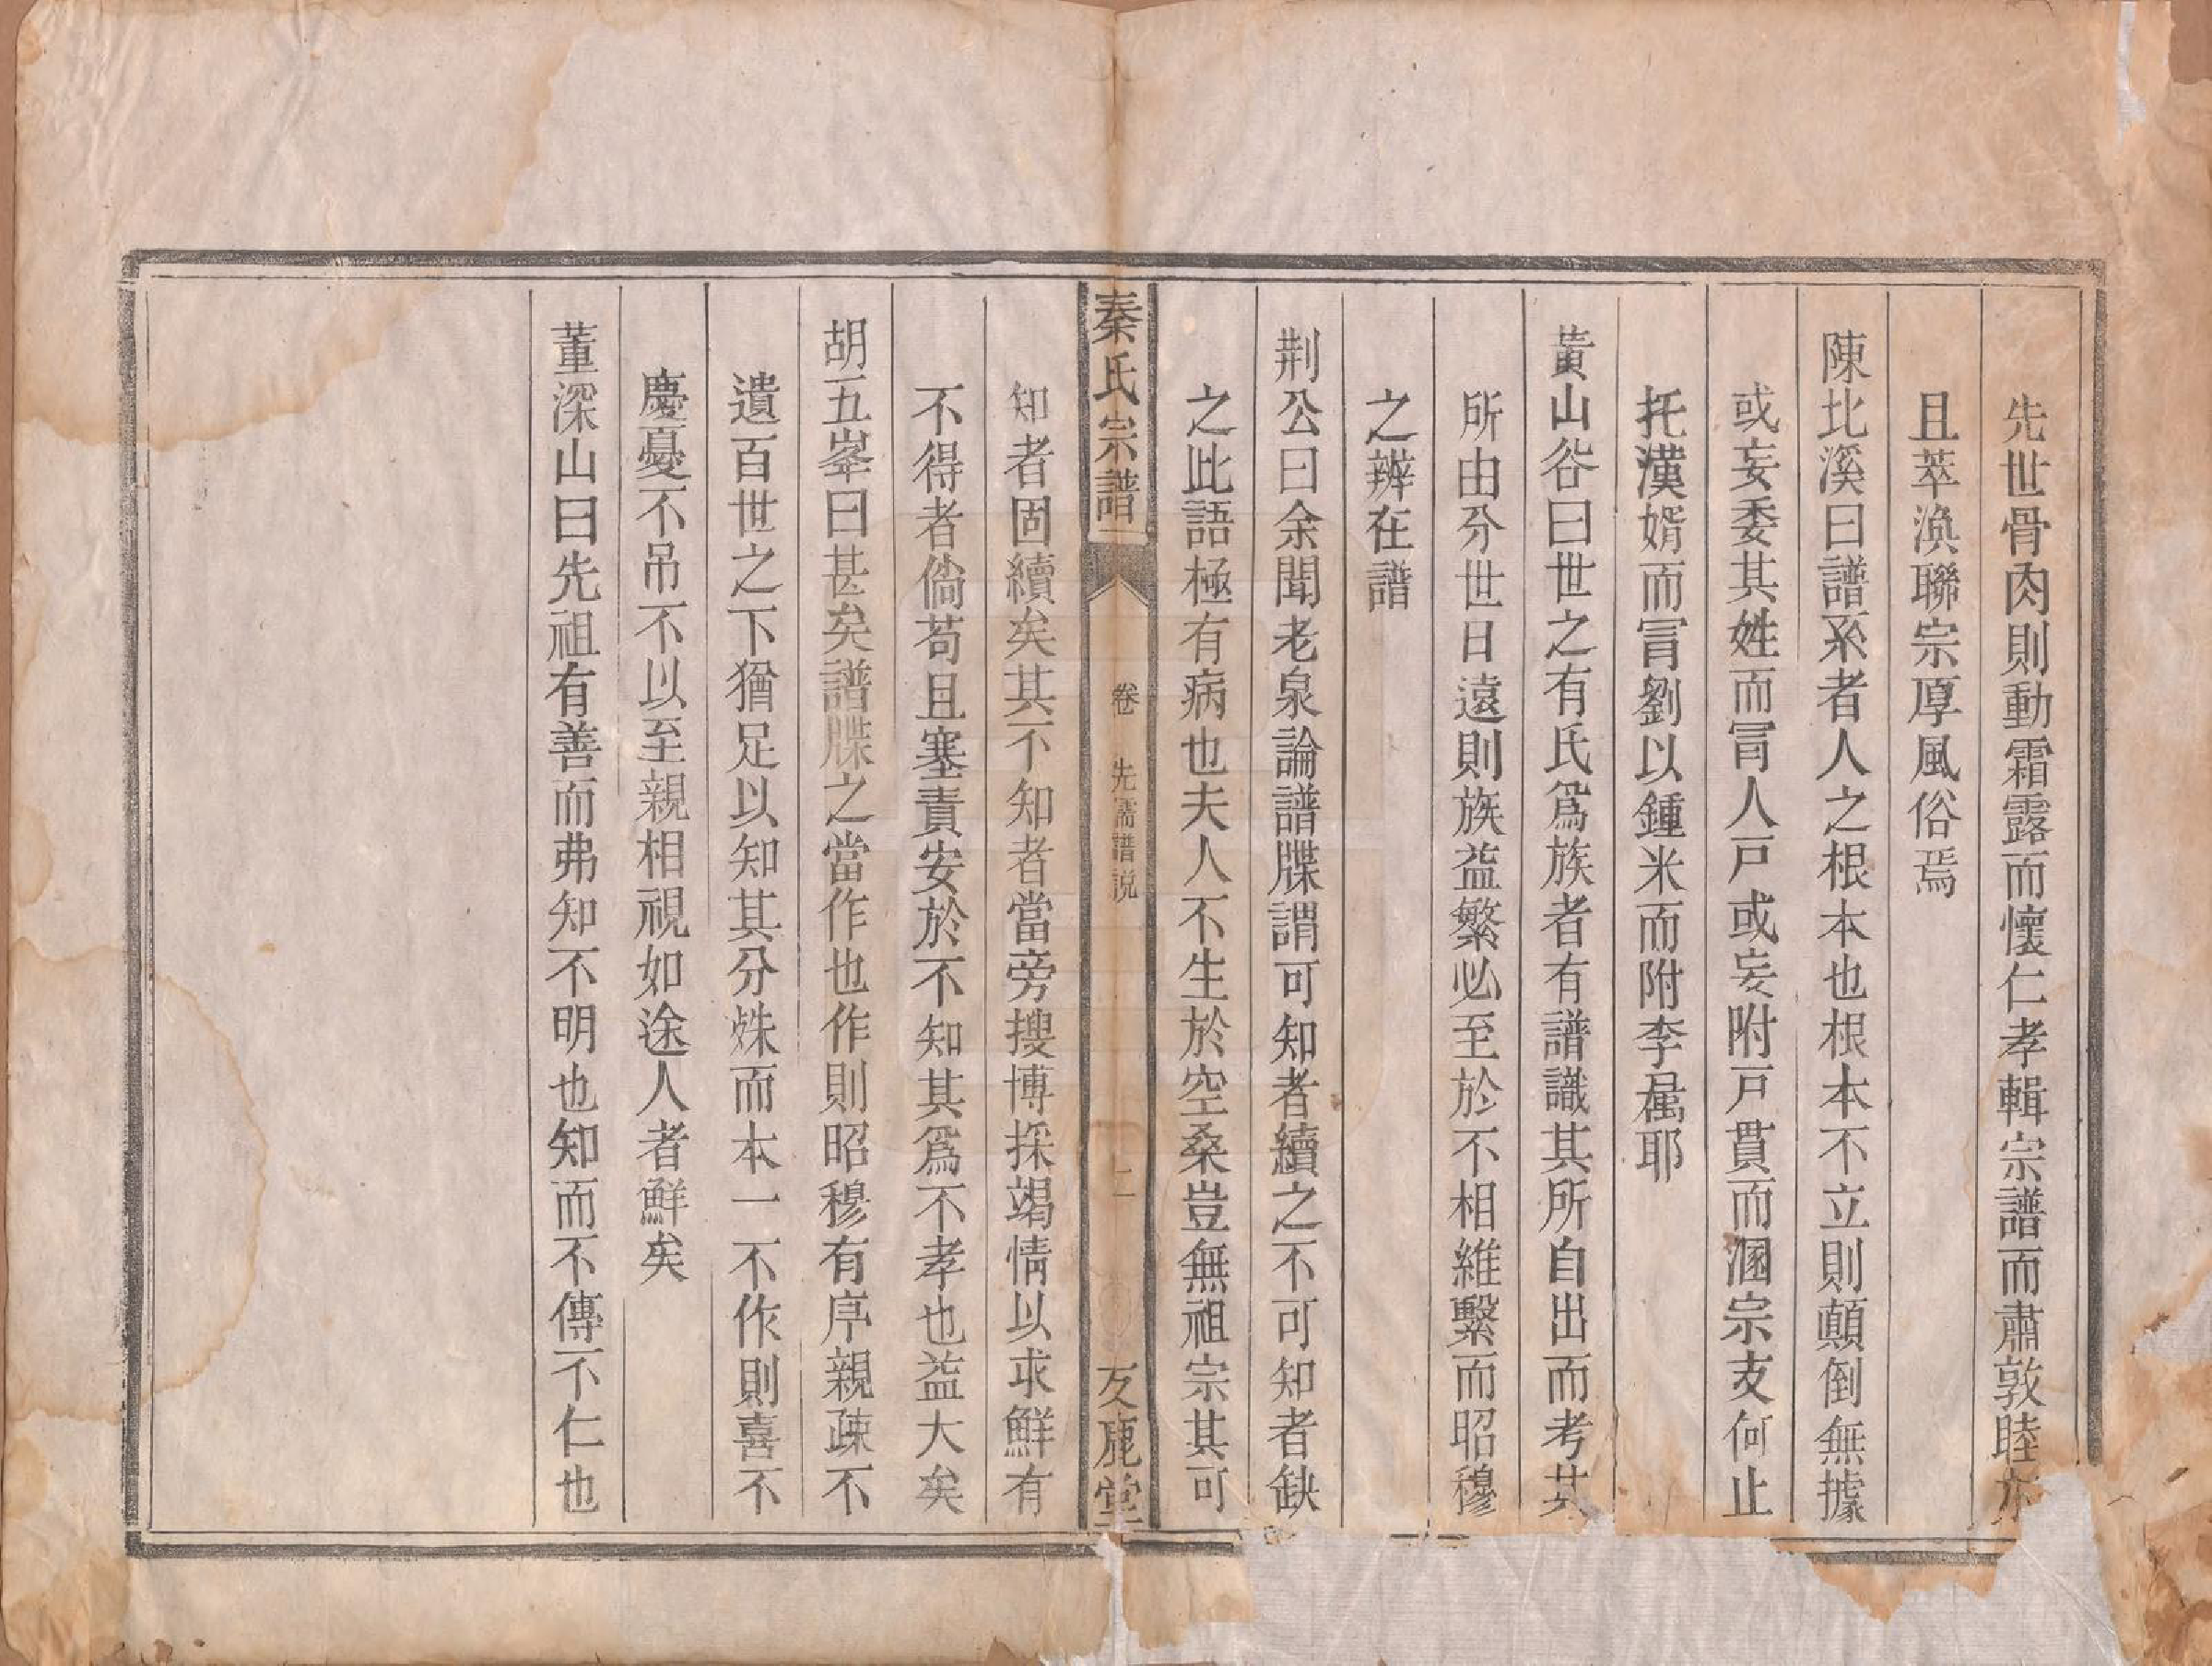 先世骨肉則動霜露而懷仁孝輯宗譜而肅敦睦亦
且萃渙聯宗厚風俗焉
陳北溪曰譜系者人之根本也根本不立則顛倒無據
或妄委其姓而冐人戸或妄附戸貫而溷宗支何止
托漢婿而冐劉以鍾米而附李屬耶
黃山谷曰世之有氏爲族者有譜識其所自出而考其
所由分世日遠則族益繁必至於不相維繫而昭穆
之辨在譜
荆公曰余聞老泉論譜牒謂可知者續之不可知者缺
之此語極有病也夫人不生於空桑豈無祖宗其可
秦氏宗譜 卷 先儒譜説 二 友鹿堂
知者固續矣其不知者當旁搜博採竭情以求鮮有
不得者倘苟且塞責安於不知其爲不孝也益大矣
胡五峯曰甚矣譜牒之當作也作則昭穆有序親疎不
遺百世之下猶足以知其分殊而本一不作則喜不
慶憂不吊不以至親相視如途人者鮮矣
董深山曰先祖有善而弗知不明也知而不傳不仁也